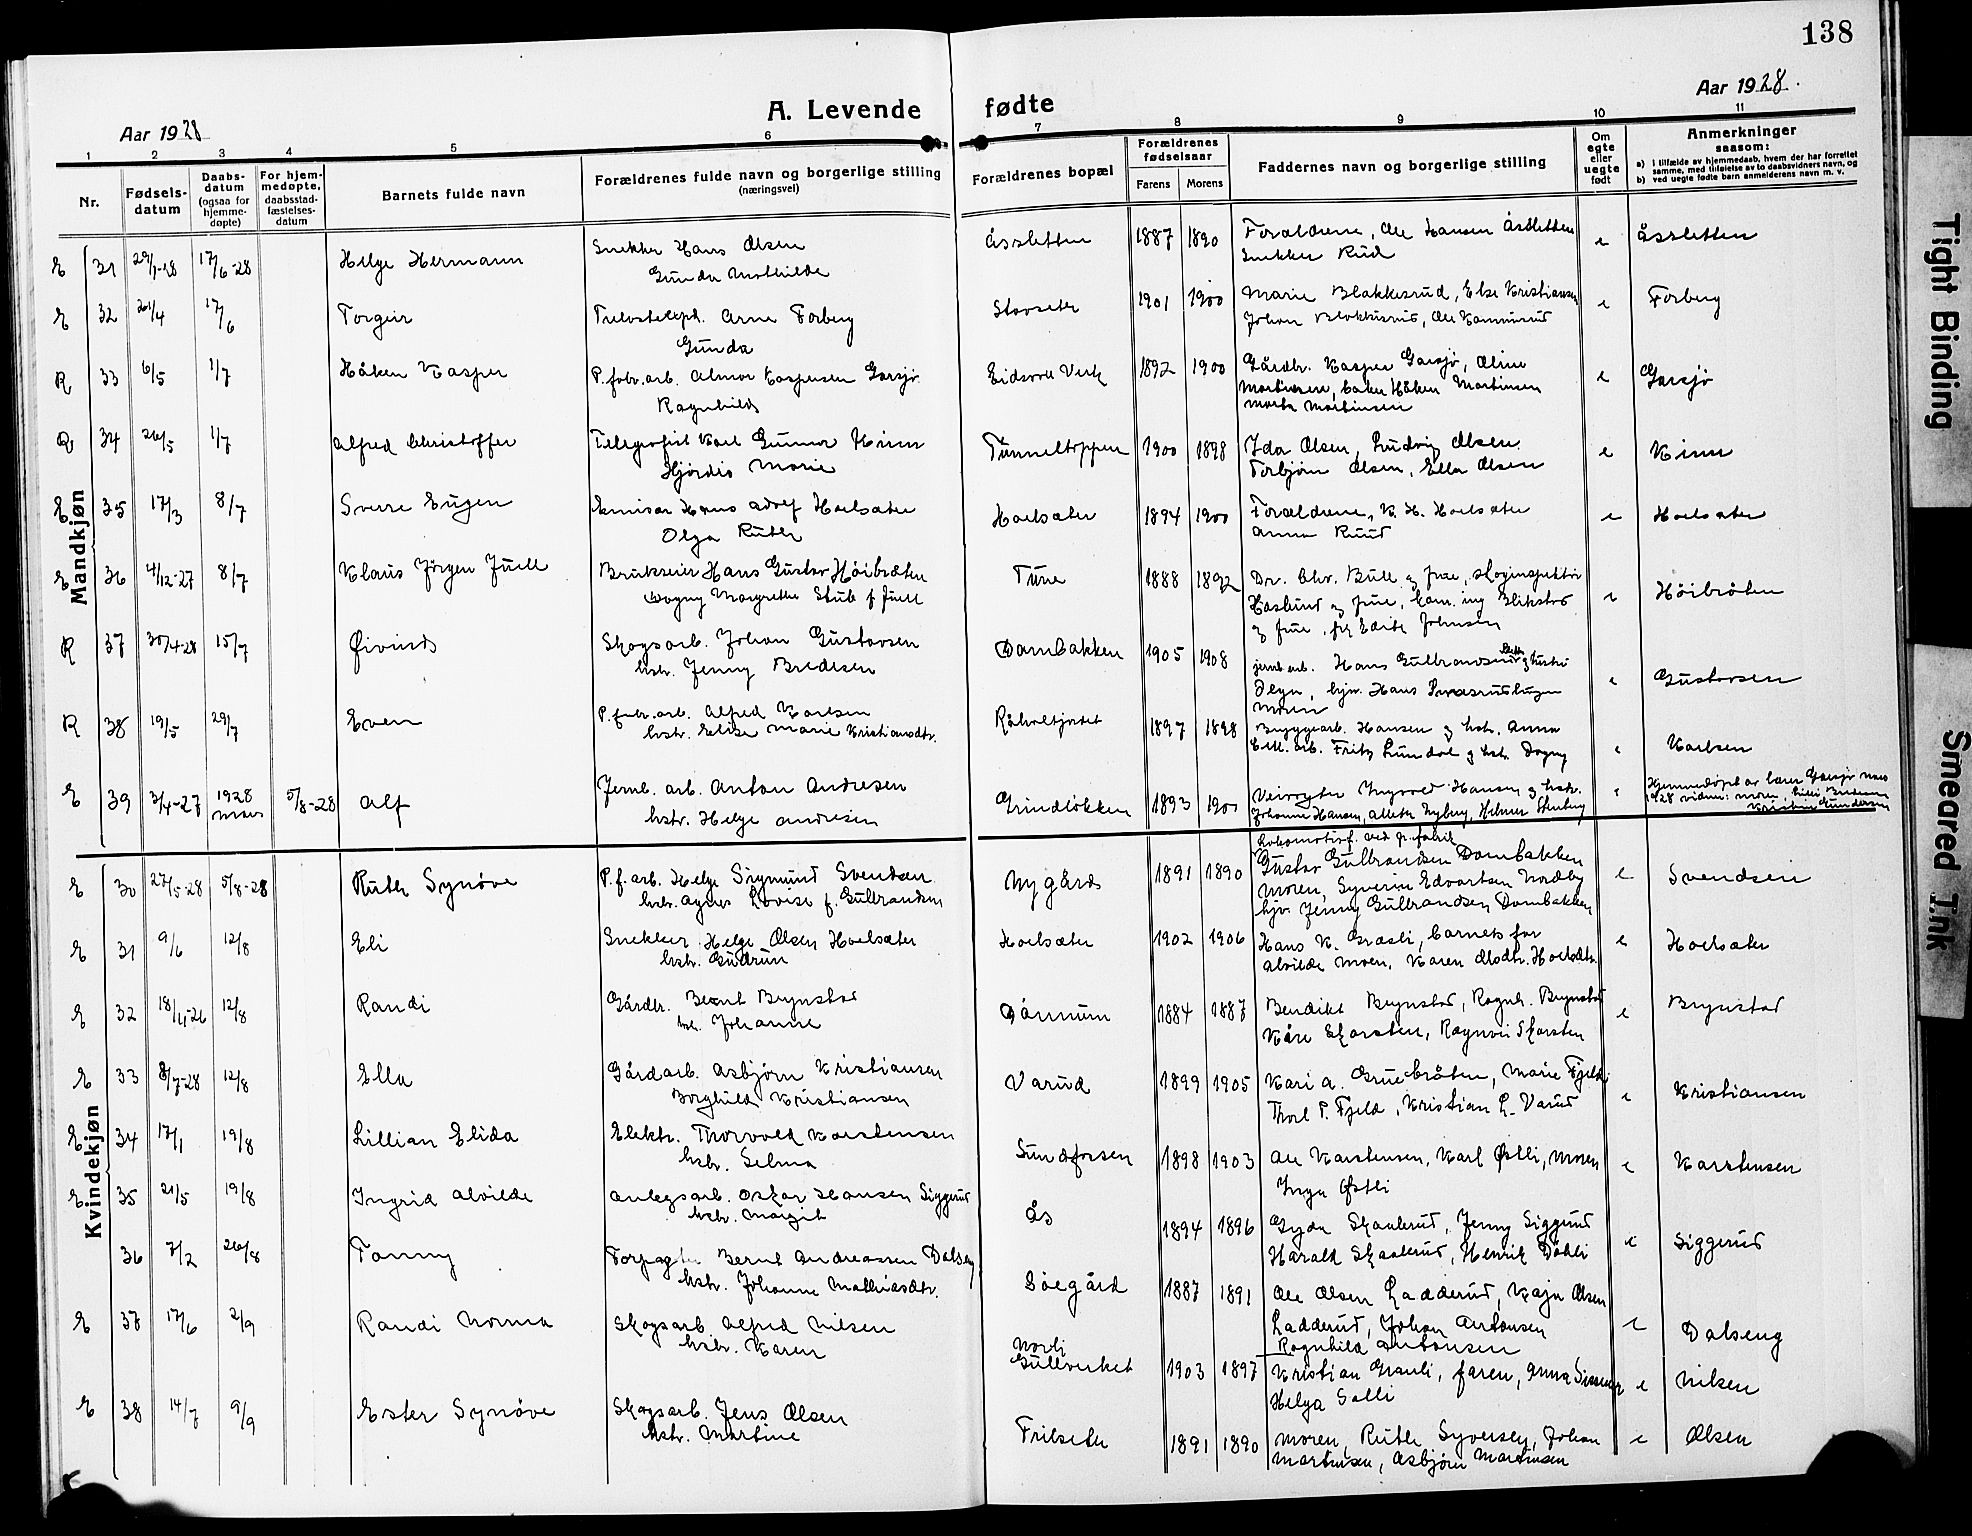 138
Aar 1928
A. Levende fødte
Aar 1928.
1 2 3 4 5 6 7 8 9 10 11
Nr.
Fødsels-datum
Daabs-datum (ogsaa for hjemme-døpte)
For hjem-medøpte, daabsstad-fæstelses-datum
Barnets fulde navn
Forældrenes fulde navn og borgerlige stilling
(næringsvei)
Forældrenes bopæl
Forældrenes fødselsaar
Farens Morens
Faddernes navn og borgerlige stilling
Om egte eller uegte født
Anmerkninger
saasom:
a) i tilfælde av hjemmedaab, hvem der har forrettet samme, med tilføielse av to daabsvidners navn, og
b) ved uegte fødte barn anmelderens navn m. v.
Mandkjøn
E 31 29/1-28 17/6-28 Helge Hermann Snekker Hans Olsen Åssletten 1887 1890 Forældrene, Ole Hansen Åssletten e Åssletten
Gunda Mathilde Snekker Rud
E 32 17/6 Torgeir Arne Forberg 1901 1900 Marie Blakkesrud, Else Kristiansen e Forberg
Gunda Johan Blakkisrud, Ole
R 33 6/5 1/7 Håken Kasper P. fabr. arb. Almar Kaspersen Garsjø Eidsvold Verk 1892 1900 Gårdbr. Kasper Garsjø, Oline e Garsjø
Ragnhild Martinsen, Håken Martinsen
Marta Martinsen
R 34 26/5 1/7 Alfred Christoffer Telegrafist Karl Gunnar Kinn Tunneltoppen 1900 1898 Ida Olsen, Ludvig Olsen e Kinn
Hjørdis Marie Torbjørn Olsen, Ella Olsen
E 35 17/3 8/7 Sverre Eugen Emisær Hans Adolf Hoelsæter Hoelsæter 1894 1900 Forældrene, K. H. Hoelsæter e Hoelsæter
Olga Ruth Anna Ruud
E 36 4/12-27 8/7 Klaus Jörgen Juell Brukseier Hans Gustav Höibråten Tune 1888 1892 Dr. Chr. Bull og frue, skoginspektør e Höibråten
Dagny Margrethe Stub f Juell Haslund og frue, ing Blikstad
og frue, frk Edith Johnsen
R 37 30/4-28 15/7 Øivind Skogsarb. Johan Gustavsen Dambakken 1905 1908 jernb. arb. Hans Gulbrandsen og hustru e Gustavsen
hstr. Jenny Bredesen hjv. Hans
Moren
R 38 19/5 29/7 Even P. fabr. arb. Alfred Karlsen Råholtjordet 1897 1898 Bryggearb. Hansen og hstr. Anna e Karlsen
hstr. Elise Marie Kristiansdtr. arb. Fritz Lundal og hstr. Dagny
E 39 3/4-27 1928 mars 5/8-28 Alf Jernb. arb. Anton Andresen Grindløkken 1893 Veivogter Ingvald Hansen og hstr. e Hjemmedøpt av lærer Garsjø mars
hstr. Helga Andresen Johanne Hansen, Nyberg, Helmer Stenberg 1928 vidner: moren,
Gundersen
Kvindekjøn
Lokomotivf. ved p. fabrik
E 30 27/5-28 5/8-28 Ruth Synöve P. f. arb. Helge Sigmund Svendsen Nygård 1891 1890 Gustav Gulbrandsen Dambakken e Svendsen
hstr. Agnes Lovise f. Gulbrandsen Moren, Syverin Edvartsen Nordby
hjv. Jenny Gulbrandsen Dambakken
E 31 9/6 12/8 Eli Snekker Helge Olsen Hoelsæter Hoelsæter 1902 1906 Hans K. Græsli, barnets far e Hoelsæter
hstr. Gudrun Alvilde Moen, Karen Olsdtr. Hoelsætr.
E 32 12/8 Randi Gårdbr. Bernt Brynstad Dönnum 1884 1887 Bendikt Brynstad, Ragnh. Brynstad e Brynstad
hst. Johanne Kåre Skarsten, Ragnvei Skarsten
E 33 8/7-28 12/8 Ella Gårdarb. Asbjørn Kristiansen Varud 1899 1905 Kari A. Gruebråten, Marie Fjeld e Kristiansen
Borghild Kristiansen Thorl P. Fjeld, Kristian L. Varud
E 34 17/1 19/8 Lillian Elida Elektr. Thorvald Karstensen Sundfossen 1898 1903 Ole Karstensen, Karl Østli, Moren e Karstensen
hstr. Selma Inga Østli
E 35 21/5 19/8 Ingrid Alvilde Anlegsarb. Oskar Hansen Siggerud Ås 1894 1896 Gyda Skanlerud, Jenny Siggerud e Siggerud
hstr. Margit Harald Skanlerud, Henrik Döhli
36 7/2 26/8 Fanny Forpagter Bernt Andreassen Dalseng Böegård 1887 1891 Ole Olsen Ladderud, Kaja Olsen e Dalseng
hstr. Johanne Mathiasdtr. Ladderud, Johan Antonsen
Ragnhild Antonsen
E 37 17/6 2/9 Randi Norma Skogsarb. Alfred Nilsen Nordi Gullverket 1903 1897 Kristian Granli, faren, Anna e Nilsen
hstr. Karen Helga Solli
E 38 14/7 9/9 Ester Synöve Skogsarb. Jens Olsen Frilseter 1891 1890 Moren, Ruth Syversen, Johan e Olsen
hstr. Martine Martinsen, Asbjørn Martinsen
Tight Binding
Smeared Ink